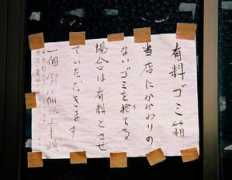 有料ゴミ箱
当店にかかわりの
ないゴミを捨てる
場合は有料とさせ
ていただきます
一個